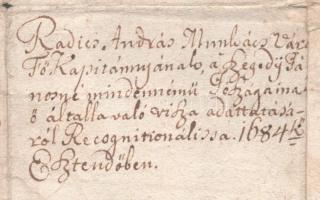 Radics András Munkács Vár
Fő Kapitánnyának, a Szegedy Já
nosné mindennémű Jószágaina
k által la való visza adattatásá-
ról Recognitionalissa. 1684 ik
Esztendőben.